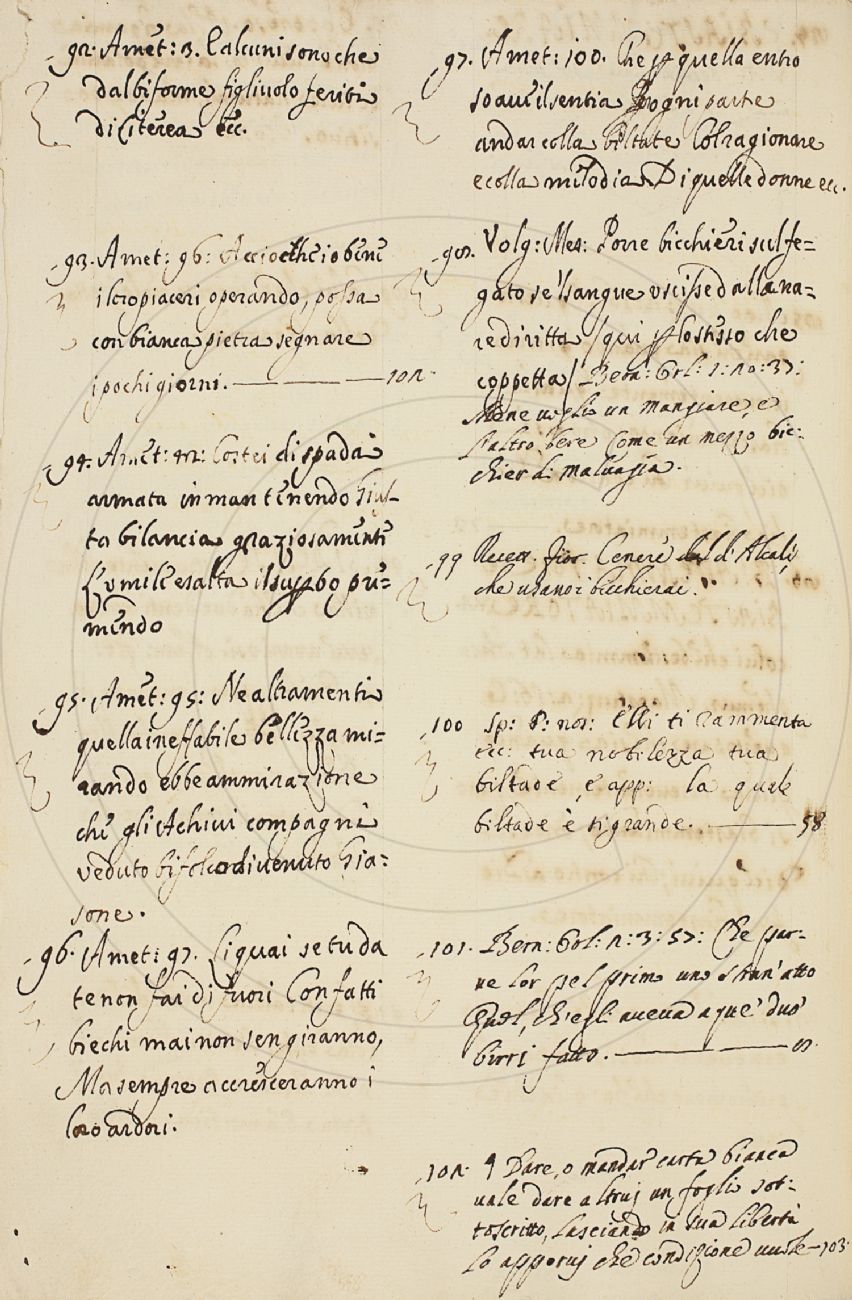 92. Amet: 3. E alcuni sono che
dal biforme figliuolo feriti
di Citerea ec.
93. Amet: 96: Acciocch'io bene
i loro piaceri operando, possa
con bianca pietra segnare
i pochi giorni. 102
94. Amet: 42: Costei di spada
armata in man tenendo Gius-
ta bilancia graziosamente
L'umil' esalta il superbo pre=
mendo
95. Amet: 95: Ne altramenti
quella ineffabile bellezza mi=
rando ebbe ammirazione
che gli Achivi compagni
veduto bifolco divenuto Gia=
sone.
96. Amet: 97. Li quai se tu da
te non fai di fuori Con fatti
biechi mai non sen giranno,
Ma sempre accresceranno i
loro ardori.
97. Amet: 100. Che per quella entro
soave il sentia Per ogni parte
andar colla biltate Col ragionare
e colla milodia Di quelle donne ec.
98. Volg: Mes: Porre bicchieri sul fe=
gato se 'l sangue uscisse dalla na=
re diritta / qui per lo stesso che
coppetta / Bern: Orl: 1: 20: 37:
Mene voglio un mangiare, e
l'altro bere Come un mezzo bic=
chier di malvagia.
99 Ricett. Fior. Cenere d'Alcali,
che usano i bicchierai.
100 Sp: P: nos: Elli ti rammenta
ec: tua nobilezza tua
biltade, e app: la quale
biltade è sì grande. 58
101. Bern: Orl: 2: 3: 57: Che par-
ve lor pel primo uno stran' atto
Quel, ch'egli aveva a que' duo'
birri fatto.
102. ¶ Dare, o mandar carta bianca
vale dare altruj un foglio sot=
toscritto, lasciando in sua libertà
lo apporvi che condizione vuole 103.